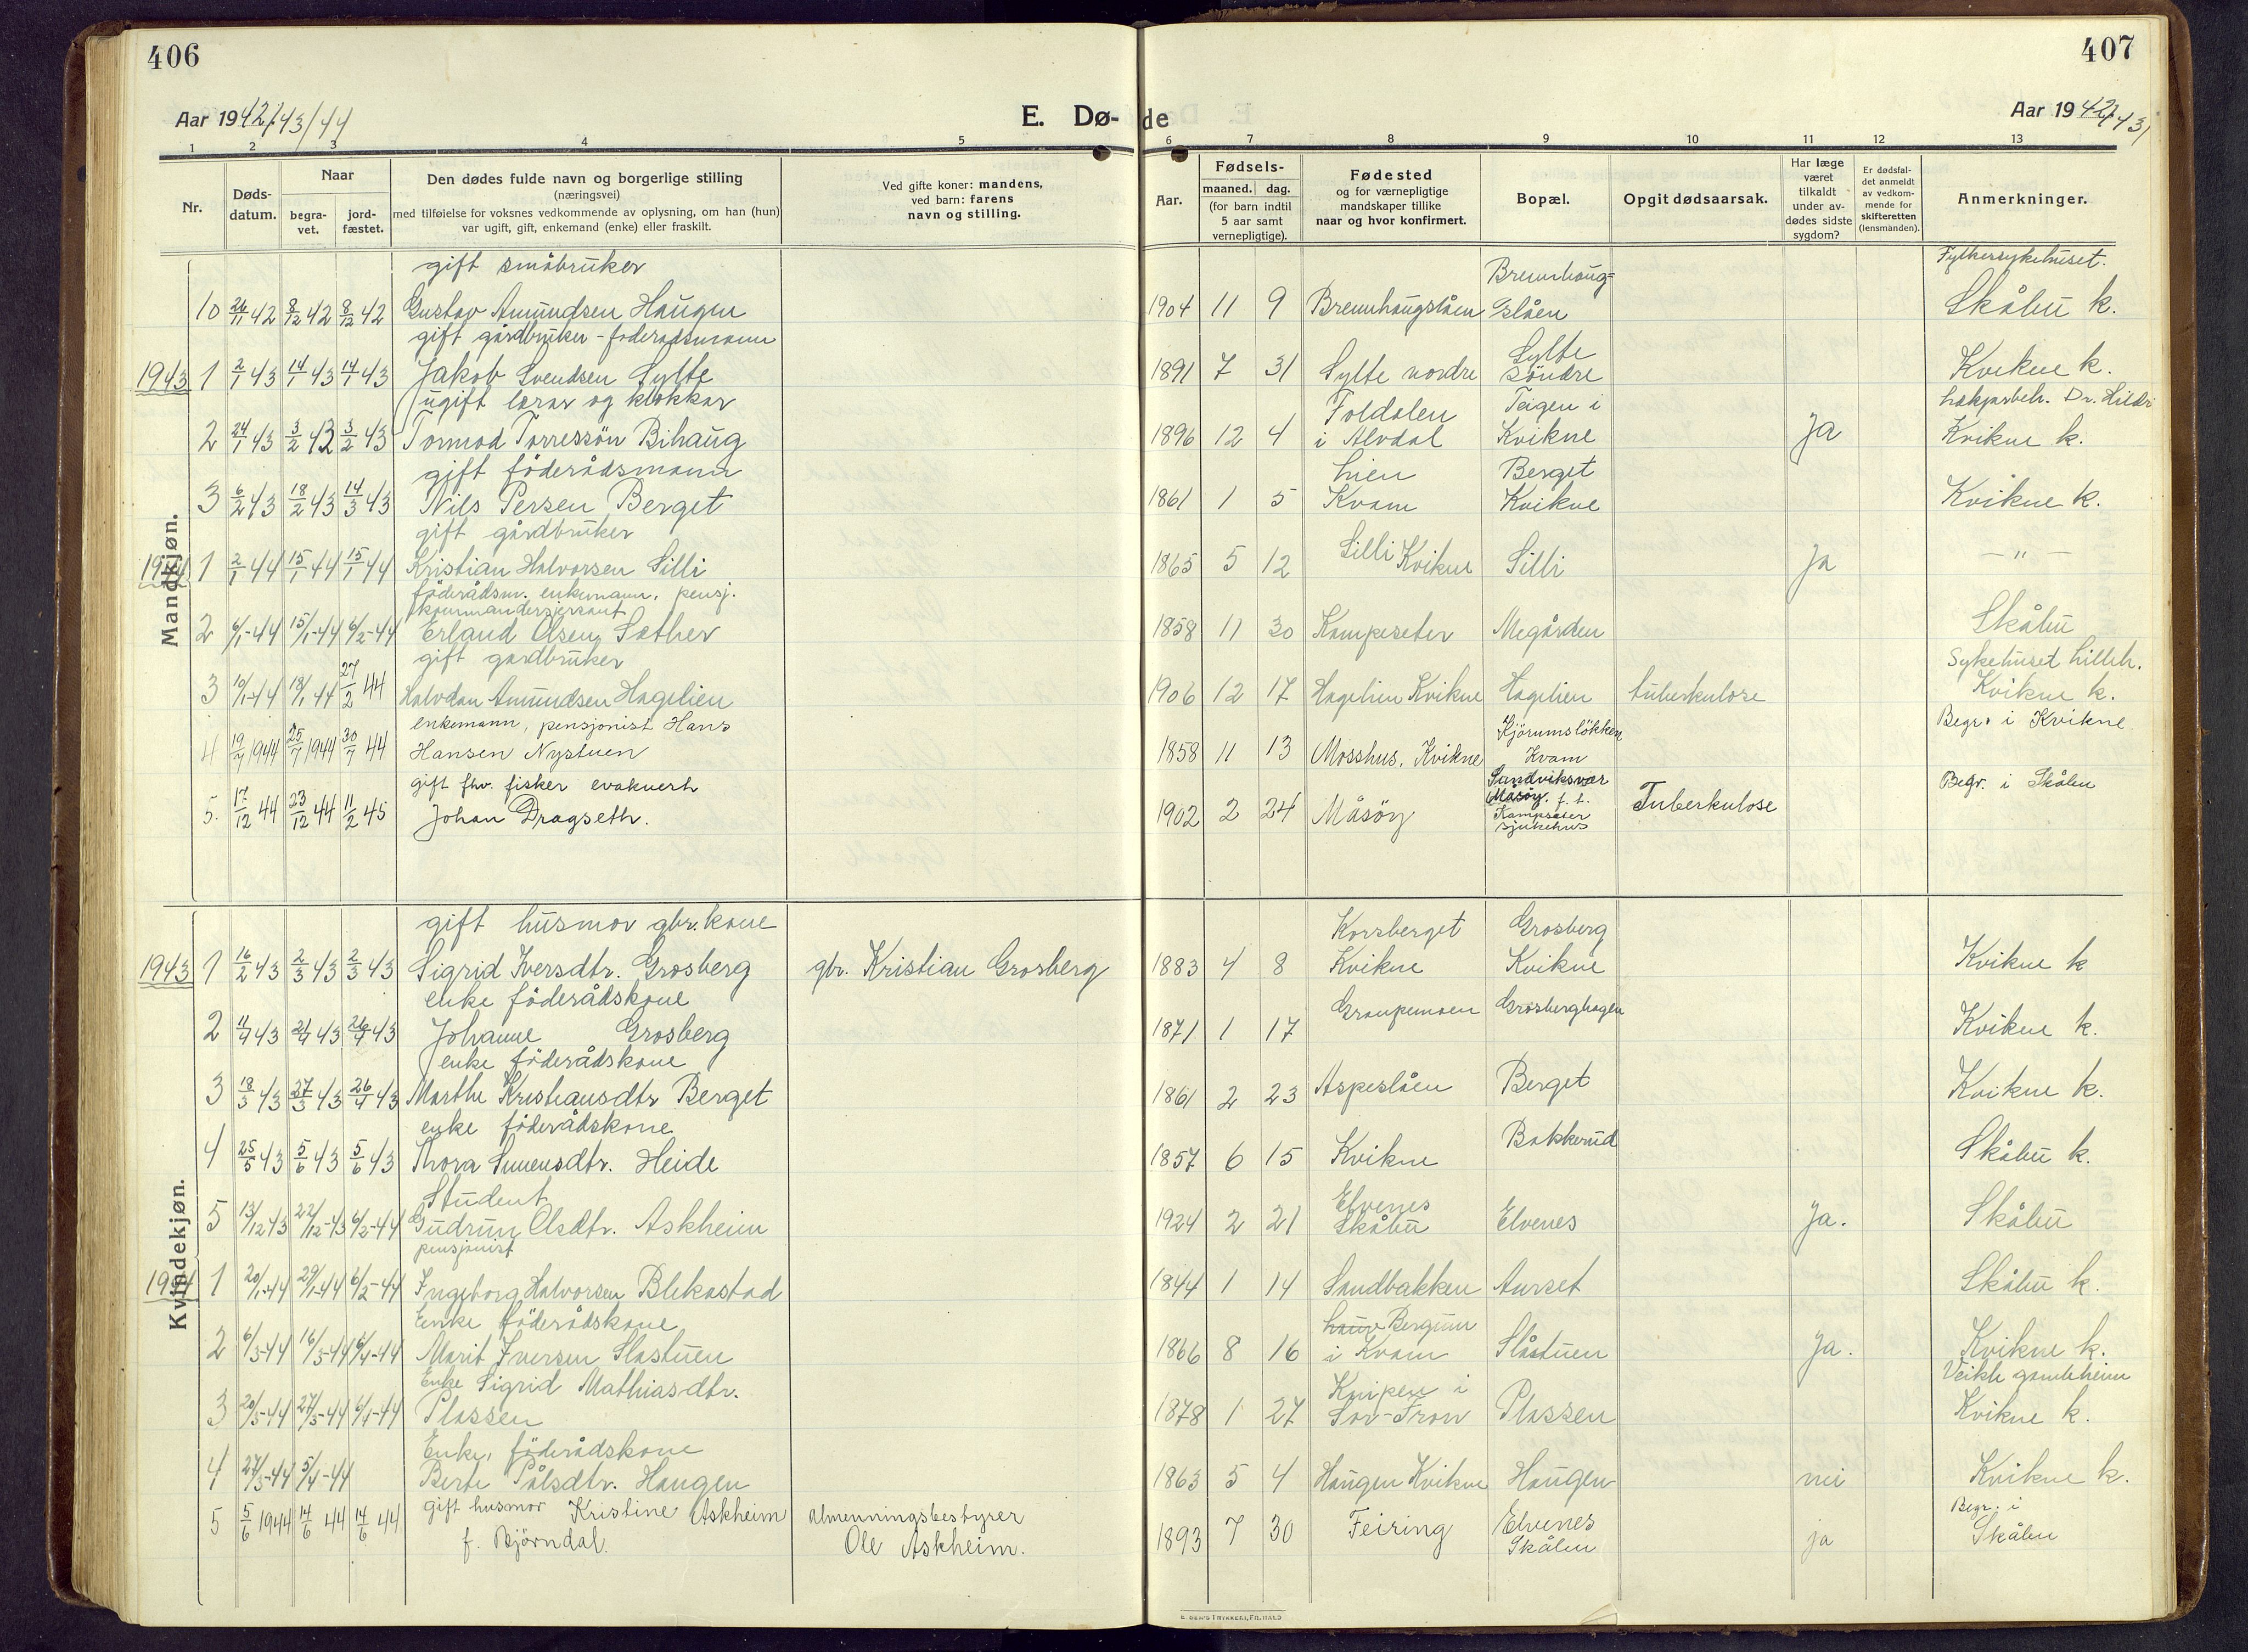 406
Aar 1942/43/44
E. Dø-
1 2 3 4 5
Nr.
Døds-
datum.
Naar
begra-
vet.
jord-
fæstet.
Den dødes fulde navn og borgerlige stilling
(næringsvei)
med tilføielse for voksnes vedkommende av oplysning, om han (hun)
var ugift, gift, enkemand (enke) eller fraskilt.
Ved gifte koner: mandens,
ved barn: farens
navn og stilling.
Mandkjøn.
gift småbruker
10 26/11 42 8/12 42 8/12 42 Gustav Amundsen Haugen
gift gårdbruker - foderadsmann
1943 1 2/1 43 14/1 43 14/1 43 Jakob Svendsen Sylte
ugift lærar og klokkar
2 24/1 43 3/2 43 3/2 43 Tormod Torressön Bihaug
gift föderådsmann
3 6/2 43 18/2 43 14/3 43 Nils Persen Berget
gift gårdbruker
1944 1 2/1 44 15/1 44 15/1 44 Kristian Halvorsen Silli
föderådsm. enkemann, pensj.
kommandersjersant
2 6/1-44 15/1-44 6/2-44 Erland Olsen Sæther
gift gardbruker
3 10/1-44 18/1 44 27/2 44 Halvdan Amundsen Hagelien
enkemann, pensjonist Hans
4 19/7 1944 25/7 1944 30/7 44 Hansen Nystuen
gift fhv. fisker evakuert
5. 17/12 44 23/12 44 11/2 45 Johan Dragseth.
Kvindekjøn.
gift husmor gbr. kone
1943 1 16/2 43 2/3 43 2/3 43 Sigrid Iversdtr. Grosberg gbr. Kristian Grosberg
enke föderådskone
2 11/4 43 21/4 43 26/4 43 Johanne Grosberg
enke föderådskone
3 18/3 43 27/3 43 26/4 43 Marthe Kristiansdtr Berget
enke föderådskone
4 25/5 43 5/6 43 5/6 43 Thora Simensdtr. Heide
Student
5 13/12 43 22/12-43 6/2-44 Gudrun Olsdtr. Askheim
pensjonist
1944 1 20/1-44 29/1-44 6/2-44 Ingeborg Halvorsen Blekastad
Enke föderådskone
2 6/3-44 16/3-44 6/4-44 Marit Iversen Slastuen
Enke Sigrid Mathiasdtr.
3 20/3-44 27/3-44 6/4-44 Plassen
Enke, föderådskone
4 27/3-44 5/4-44 Berte Pålsdtr. Haugen
gift husmor Kristine Askheim almenningsbestyrer
5 5/6 1944 14/6 44 14/6 44 f. Björndal. Ole Askheim.
407
Aar 1942/43/
de
6 7 8 9 10 11 12 13
Aar.
Fødsels-
maaned. dag.
(for barn indtil
5 aar samt
vernepligtige).
Fødested
og for værnepligtige
mandskaper tillike
naar og hvor konfirmert.
Bopæl.
Opgit dødsaarsak.
Har læge
været
tilkaldt
under av-
dødes sidste
sygdom?
Er dødsfal-
det anmeldt
av vedkom-
mende for
skifteretten
(lensmanden).
Anmerkninger.
Brennhaug- Fylkessykehuset.
1904 11 9 Brennhaugslåen slåen Skåbu k.
Sylte
1891 7 31 Sylte nordre söndre Kvikne k.
Foldalen Teigen i Dr.
1896 12 4 i Alvdal Kvikne Ja Kvikne k.
Lien Berget
1861 1 5 Kvam Kvikne Kvikne k.
1865 5 12 Silli Kvikne Silli Ja — " —
1858 11 30 Kampeseter Megården Skåbu
Sykehuset Lilleh.
1906 12 17 Hagelien Kvikne Hagelien tuberkulose Kvikne k.
Kjörumslökken Begr. i Kvikne
1858 11 13 Mosshus, Kvikne Kvam
Sandviksvær Begr. i Skåbu
Måsöy. f. t.
1902 2 24 Måsöy Kampseter Tuberkulose
sjukehus
Korsberget Grosberg
1883 4 8 Kvikne Kvikne Kvikne k
Graupemoen Grosberghagen
1871 1 17 Kvikne k.
1861 2 23 Aspeslåen Berget Kvikne k.
Bakkerud
1857 6 15 Kvikne Skåbu k.
Elvenes
1924 2 21 Skåbu Elvenes Ja. Skåbu
1844 1 14 Sandbakken Aurset Skåbu k.
Bergum
1866 8 16 i Kvam Slåstuen Ja. Kvikne k.
Knipen i Veikle gamleheim
1878 1 27 Sør-Fron Plassen Kvikne k.
1863 5 4 Haugen Kvikne Haugen nei Kvikne k.
Elvenes Begr. i
1893 7 30 Feiring Skåbu ja Skåbu